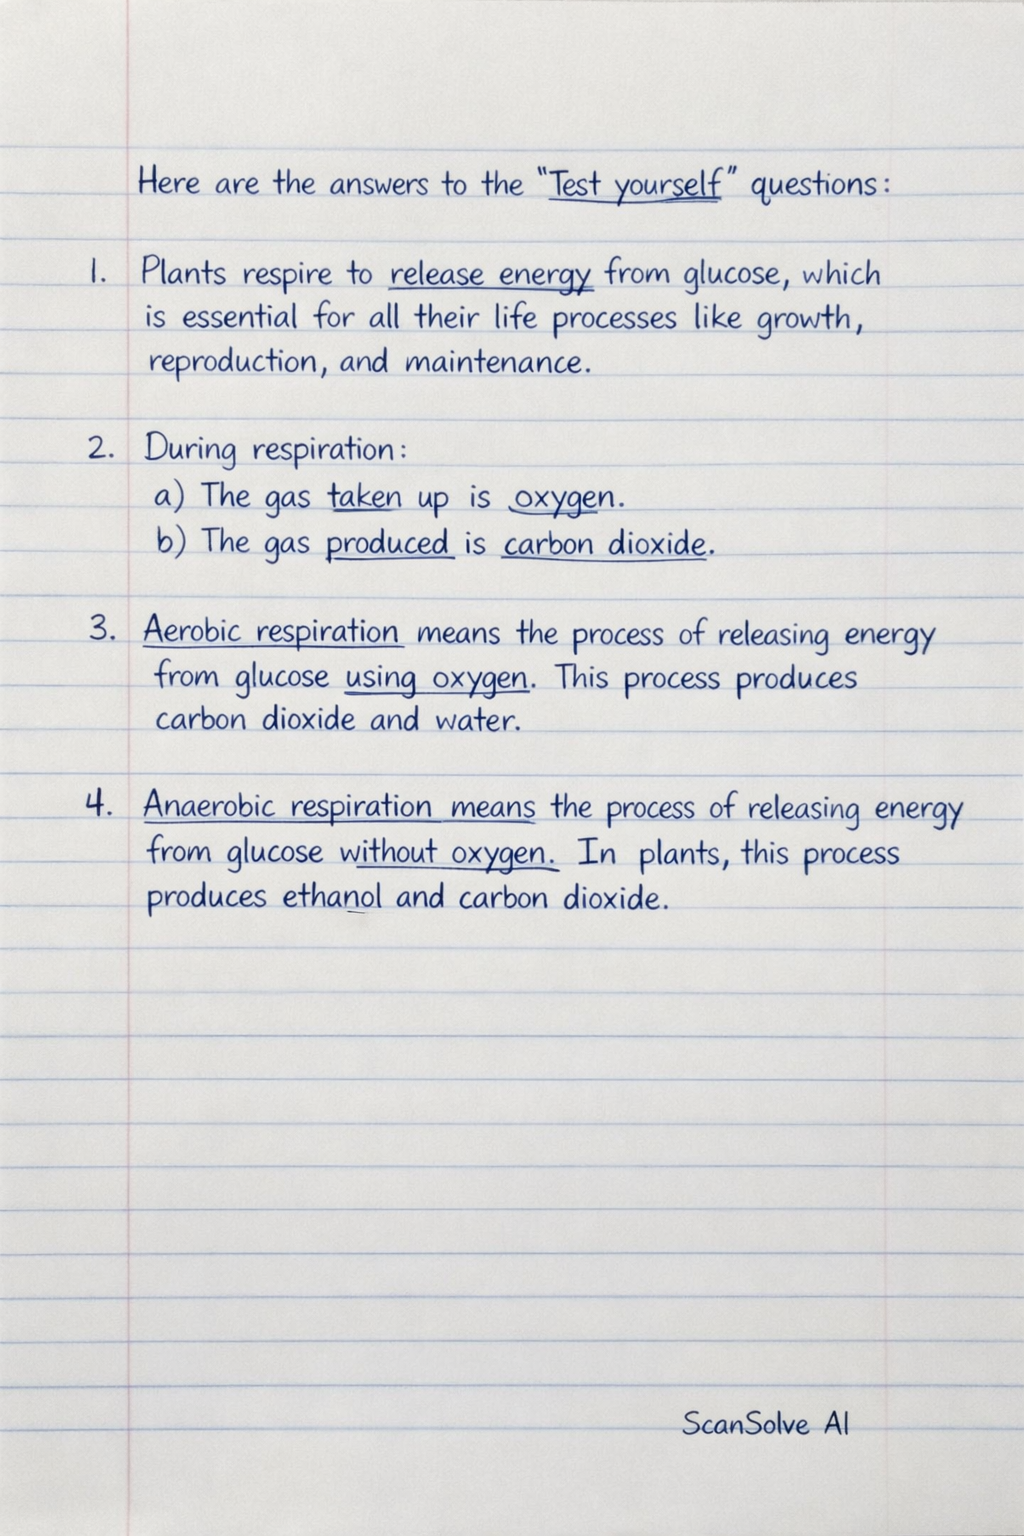 Here are the answers to the "Test yourself" questions:
1. Plants respire to release energy from glucose, which
is essential for all their life processes like growth,
reproduction, and maintenance.
2. During respiration:
a) The gas taken up is oxygen.
b) The gas produced is carbon dioxide.
3. Aerobic respiration means the process of releasing energy
from glucose using oxygen. This process produces
carbon dioxide and water.
4. Anaerobic respiration means the process of releasing energy
from glucose without oxygen. In plants, this process
produces ethanol and carbon dioxide.
ScanSolve AI